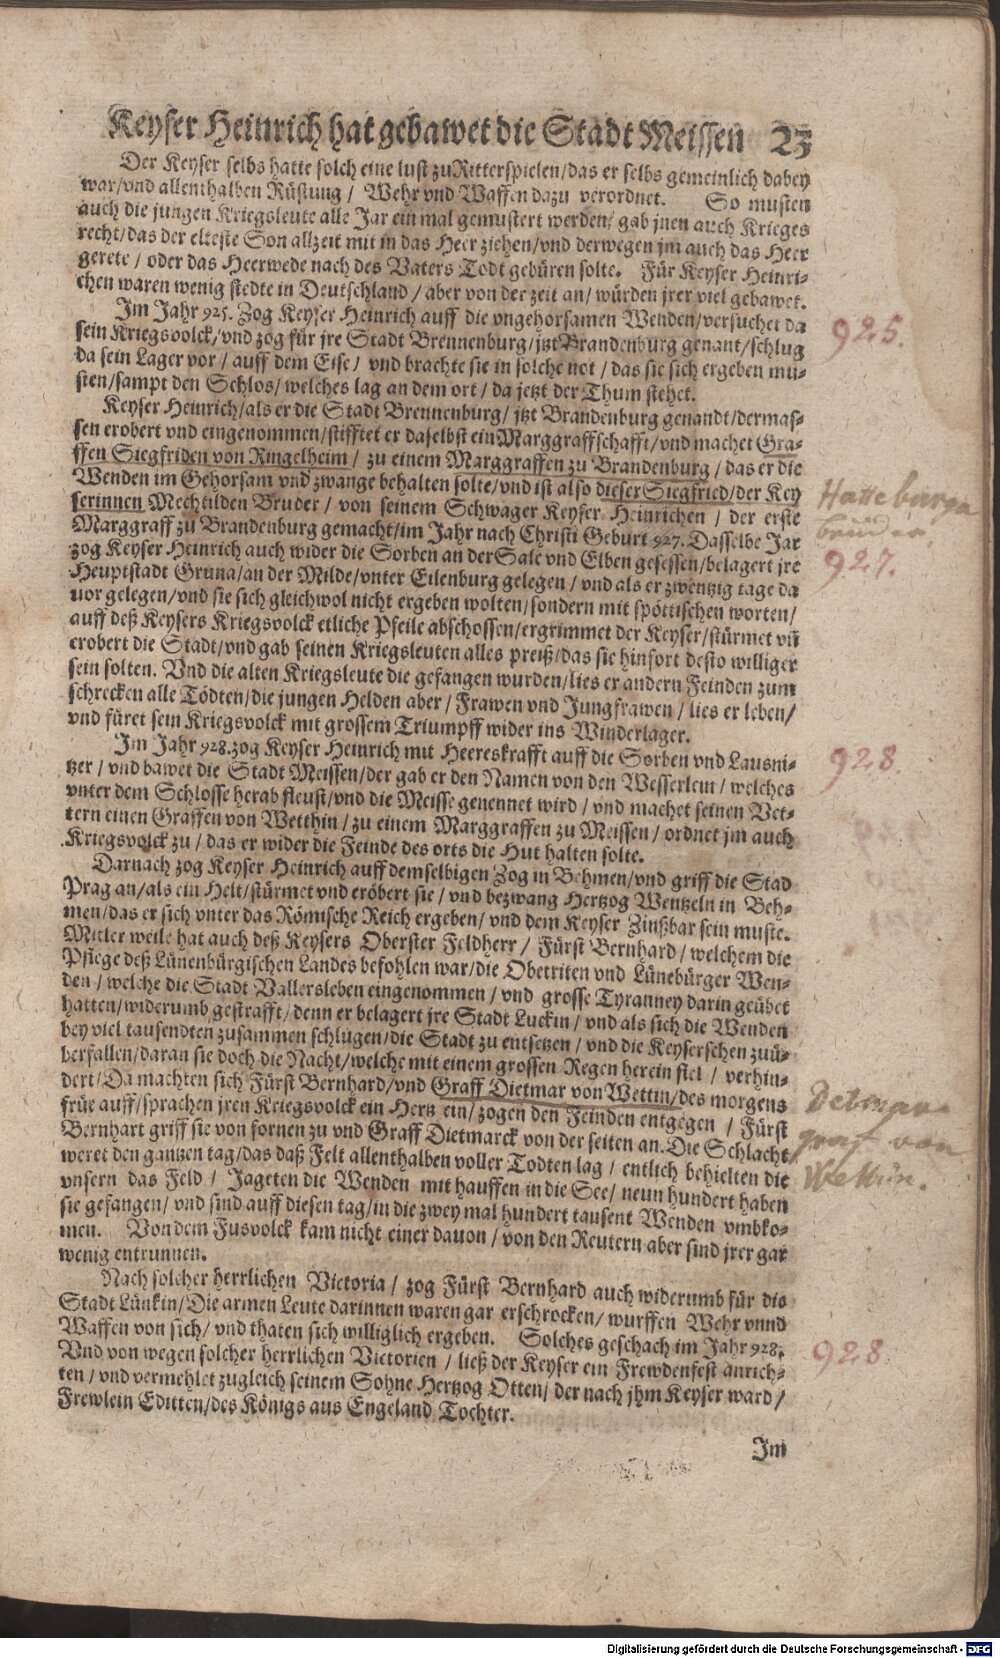 Keyser Heinrich hat gebawet die Stadt Meissen 23
Der Keyser selbs hatte solch eine lust zu Ritterspielen/das er selbs gemeinlich dabey
war/vnd allenthalben Rüstung / Wehr vnd Waffen dazu verordnet. So musten
auch die jungen Kriegsleute alle Jar ein mal gemustert werden/ gab jnen auch Krieges
recht/das der elteste Son allzeit mit in das Heer ziehen/vnd derwegen jm auch das Heer
gerete / oder das Heerwede nach des Vaters Todt gebüren solte. Für Keyser Heinri-
chen waren wenig stedte in Deutschland / aber von der zeit an/ würden jrer viel gebawet.
Im Jahr 925. Zog Keyser Heinrich auff die vngehorsamen Wenden/versuchet da
sein Kriegsvolck/vnd zog für jre Stadt Brennenburg/jtzt Brandenburg genant/schlug
da sein Lager vor / auff dem Eise/ vnd brachte sie in solche not / das sie sich ergeben mu-
sten/sampt den Schlos/welches lag an dem ort / da jetzt der Thum stehet.
925.
Keyser Heinrich/als er die Stadt Brennenburg/ jtzt Brandenburg genandt/dermas-
sen erobert vnd eingenommen/stifftet er daselbst ein Marggraffschafft/vnd machet Gra-
ffen Siegfriden von Ringelheim / zu einem Marggraffen zu Brandenburg / das er die
Wenden im Gehorsam vnd zwange behalten solte/vnd ist also dieser Siegfried/der Key
serinnen Mechtilden Bruder / von seinem Schwager Keyser Heinrichen / der erste
Marggraff zu Brandenburg gemacht/im Jahr nach Christi Geburt 927. Dasselbe Jar
zog Keyser Heinrich auch wider die Sorben an der Sale vnd Elben gesessen/belagert jre
Heuptstadt Gruna/an der Milde/vnter Eilenburg gelegen / vnd als er zwentzig tage da
uor gelegen/vnd sie sich gleichwol nicht ergeben wolten/sondern mit spöttischen worten/
auff deß Keysers Kriegsvolck etliche Pfeile abschossen/ergrimmet der Keyser/stürmet vñ
erobert die Stadt/vnd gab seinen Kriegsleuten alles preiß/das sie hinfort desto williger
sein solten. Vnd die alten Kriegsleute die gefangen wurden/lies er andern Feinden zum
schrecken alle Tödten/die jungen Helden aber / Frawen vnd Jungfrawen / lies er leben/
vnd füret sein Kriegsvolck mit grossem Triumpff wider ins Winderlager.
Hatteburga
bruder.
927.
Im Jahr 928. zog Keyser Heinrich mit Heereskrafft auff die Sorben vnd Lausni-
tzer / vnd bawet die Stadt Meissen/der gab er den Namen von den Wesserlein / welches
vnter dem Schlosse herab fleust/vnd die Meisse genennet wird / vnd machet seinen Vet-
tern einen Graffen von Wetthin / zu einem Marggraffen zu Meissen / ordnet jm auch
Kriegsvolck zu / das er wider die Feinde des orts die Hut halten solte.
928.
Darnach zog Keyser Heinrich auff demselbigen Zog in Behmen/vnd griff die Stad
Prag an/als ein Helt/stürmet vnd eröbert sie / vnd bezwang Hertzog Wentzeln in Beh-
men/das er sich vnter das Römische Reich ergeben/ vnd dem Keyser Zinßbar sein muste.
Mitler weile hat auch deß Keysers Oberster Feldherr / Fürst Bernhard / welchem die
Pflege deß Lünenbürgischen Landes befohlen war/die Obetriten vnd Lüneburger Wen-
den / welche die Stadt Vallersleben eingenommen / vnd grosse Tyranney darin geübet
hatten/widerumb gestrafft/denn er belagert jre Stadt Luckin / vnd als sich die Wenden
bey viel tausendten zusammen schlugen/die Stadt zu entsetzen / vnd die Keyserschen zuü-
berfallen/daran sie doch die Nacht/welche mit einem grossen Regen herein fiel / verhin-
dert/Da machten sich Fürst Bernhard/vnd Graff Dietmar von Wettin/des morgens
früe auff/sprachen jren Kriegsvolck ein Hertz ein/zogen den Feinden entgegen / Fürst
Bernhart griff sie von fornen zu vnd Graff Dietmarck von der seiten an. Die Schlacht
weret den gantzen tag/das daß Felt allenthalben voller Todten lag / entlich behielten die
vnsern das Feld / Jageten die Wenden mit hauffen in die See/ neun hundert haben
sie gefangen/ vnd sind auff diesen tag/in die zwey mal hundert tausent Wenden vmbko-
men. Von dem Fusvolck kam nicht einer dauon / von den Reutern aber sind jrer gar
wenig entrunnen.
Detmar
graf von
Wettin.
Nach solcher herrlichen Victoria / zog Fürst Bernhard auch widerumb für die
Stadt Lünkin/Die armen Leute darinnen waren gar erschrocken/ wurffen Wehr vnnd
Waffen von sich/ vnd thaten sich williglich ergeben. Solches geschach im Jahr 928.
Vnd von wegen solcher herrlichen Victorien / ließ der Keyser ein Frewdenfest anrich-
ten / vnd vermehlet zugleich seinem Sohne Hertzog Otten/ der nach jhm Keyser ward /
Frewlein Editten/des Königs aus Engeland Tochter.
928.
Im
Digitalisierung gefördert durch die Deutsche Forschungsgemeinschaft - DFG